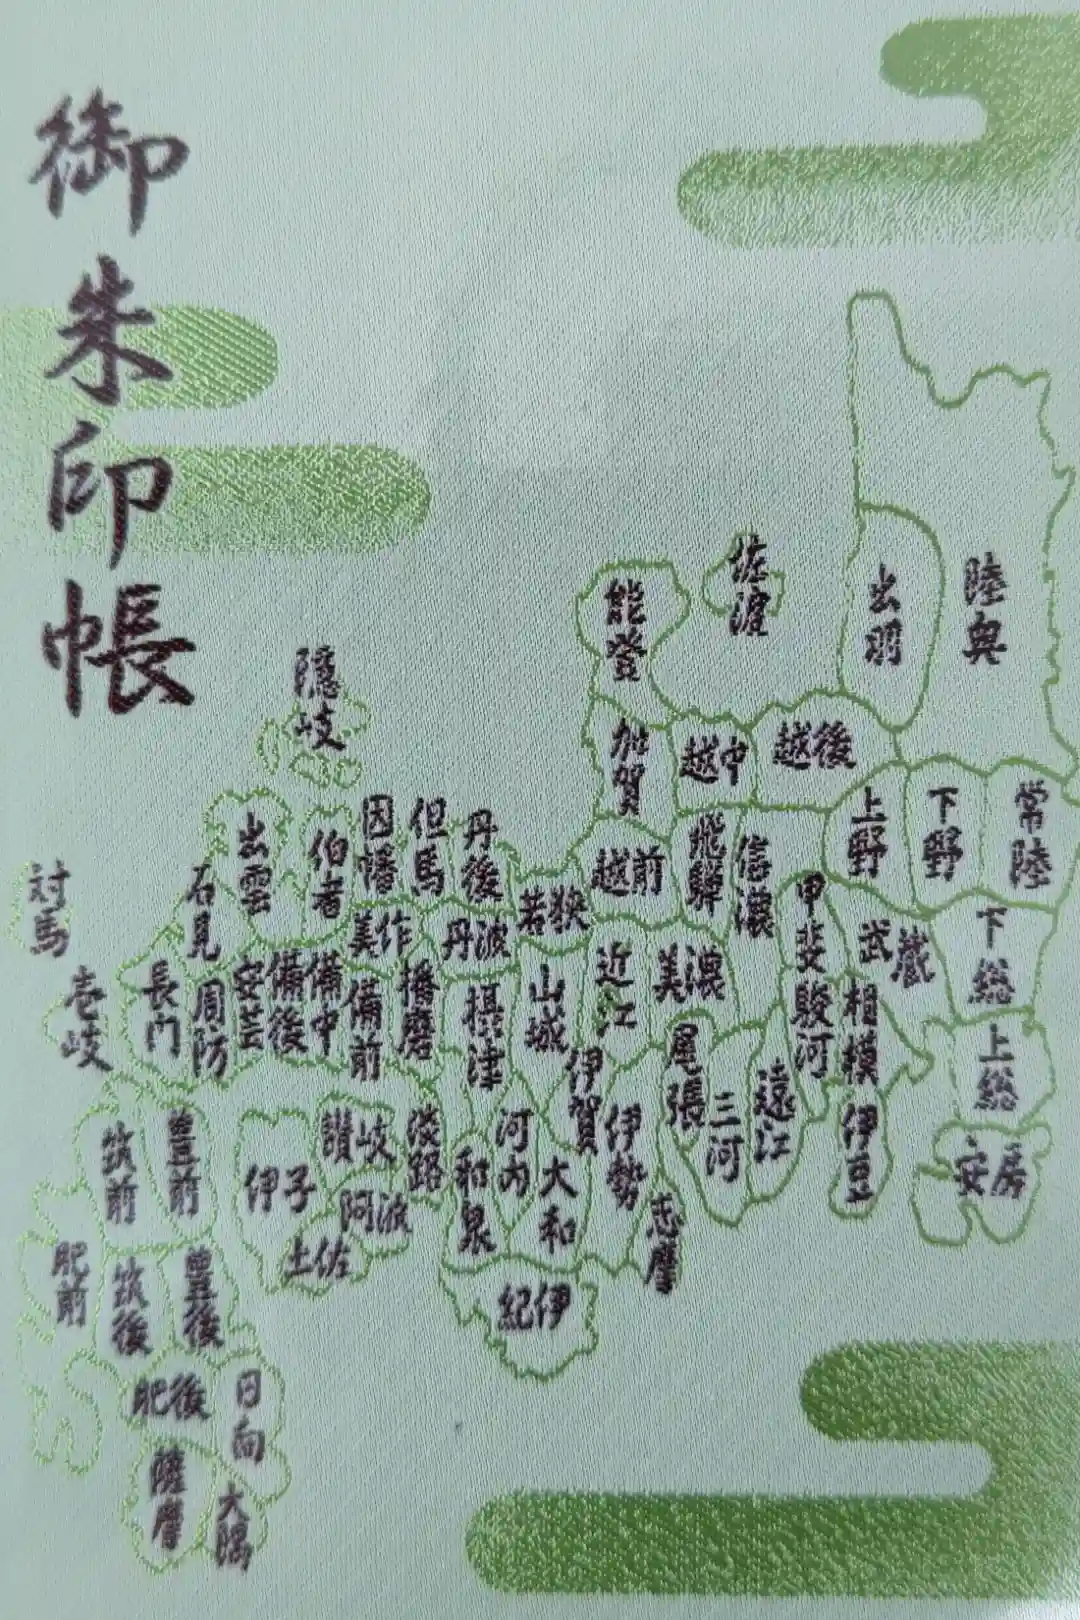 御朱印帳
陸奥
出羽
佐渡
能登
加賀
越中
越後
上野
下野
常陸
越前
飛騨
信濃
甲斐
武蔵
下総
上総
安房
相模
伊豆
駿河
遠江
三河
尾張
美濃
近江
若狭
山城
伊賀
伊勢
志摩
大和
河内
和泉
紀伊
摂津
丹波
丹後
但馬
因幡
伯者
出雲
隠岐
石見
美作
播磨
備前
備中
備後
安芸
周防
長門
淡路
讃岐
阿波
伊予
土佐
対馬
壱岐
筑前
豊前
肥前
筑後
豊後
肥後
日向
薩摩
大隅